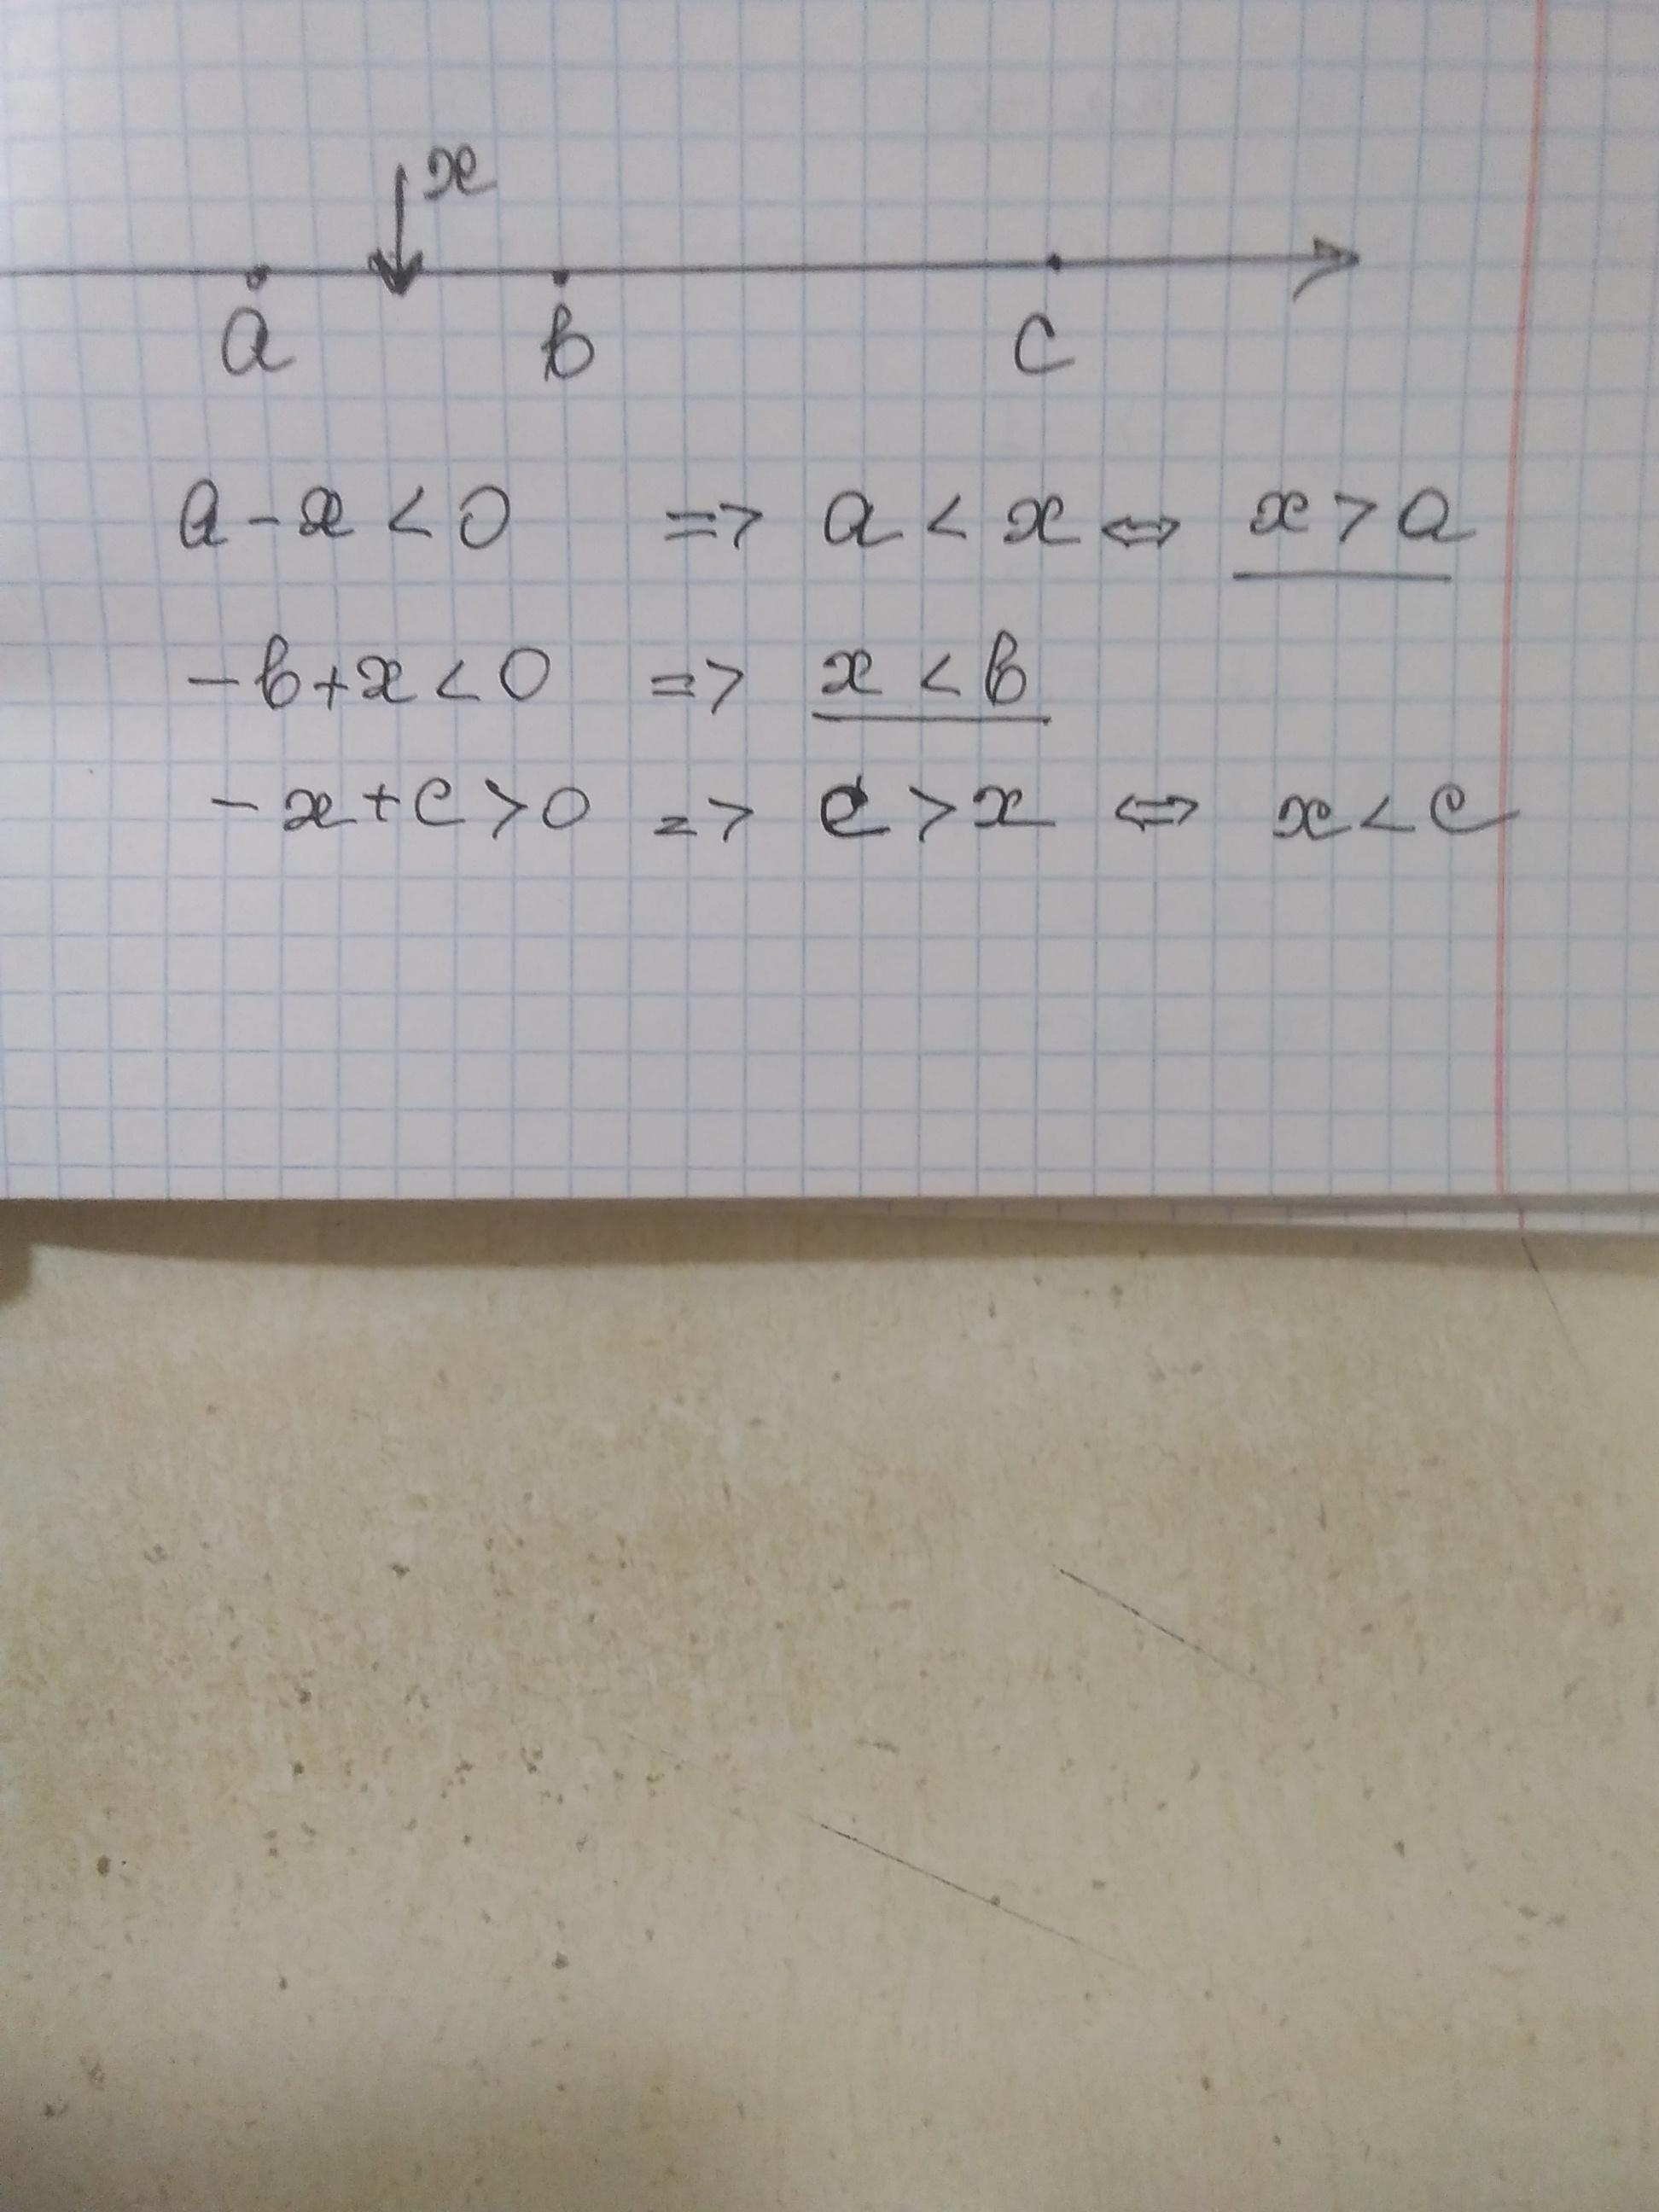 x
a b c
a - x < 0 => a < x <=> x > a
- b + x < 0 => x < b
- x + c > 0 => c > x <=> x < c